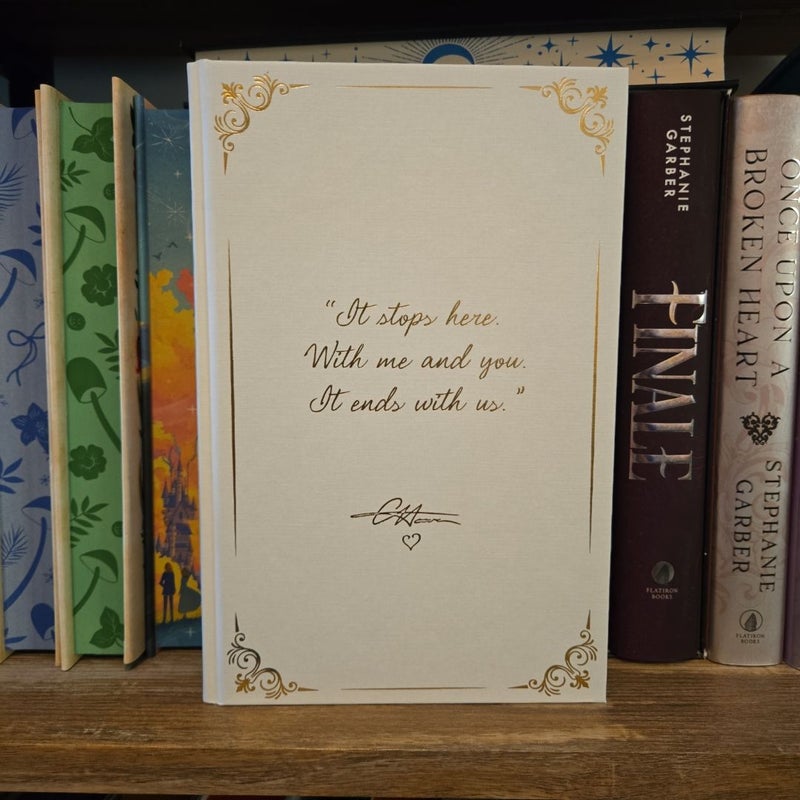 “It stops here.
With me and you.
It ends with us.”
CHoover
STEPHANIE
GARBER
FINALE
FLATIRON
BOOKS
ONCE UPON A
BROKEN HEART
STEPHANIE
GARBER
FLATIRON
BOOKS